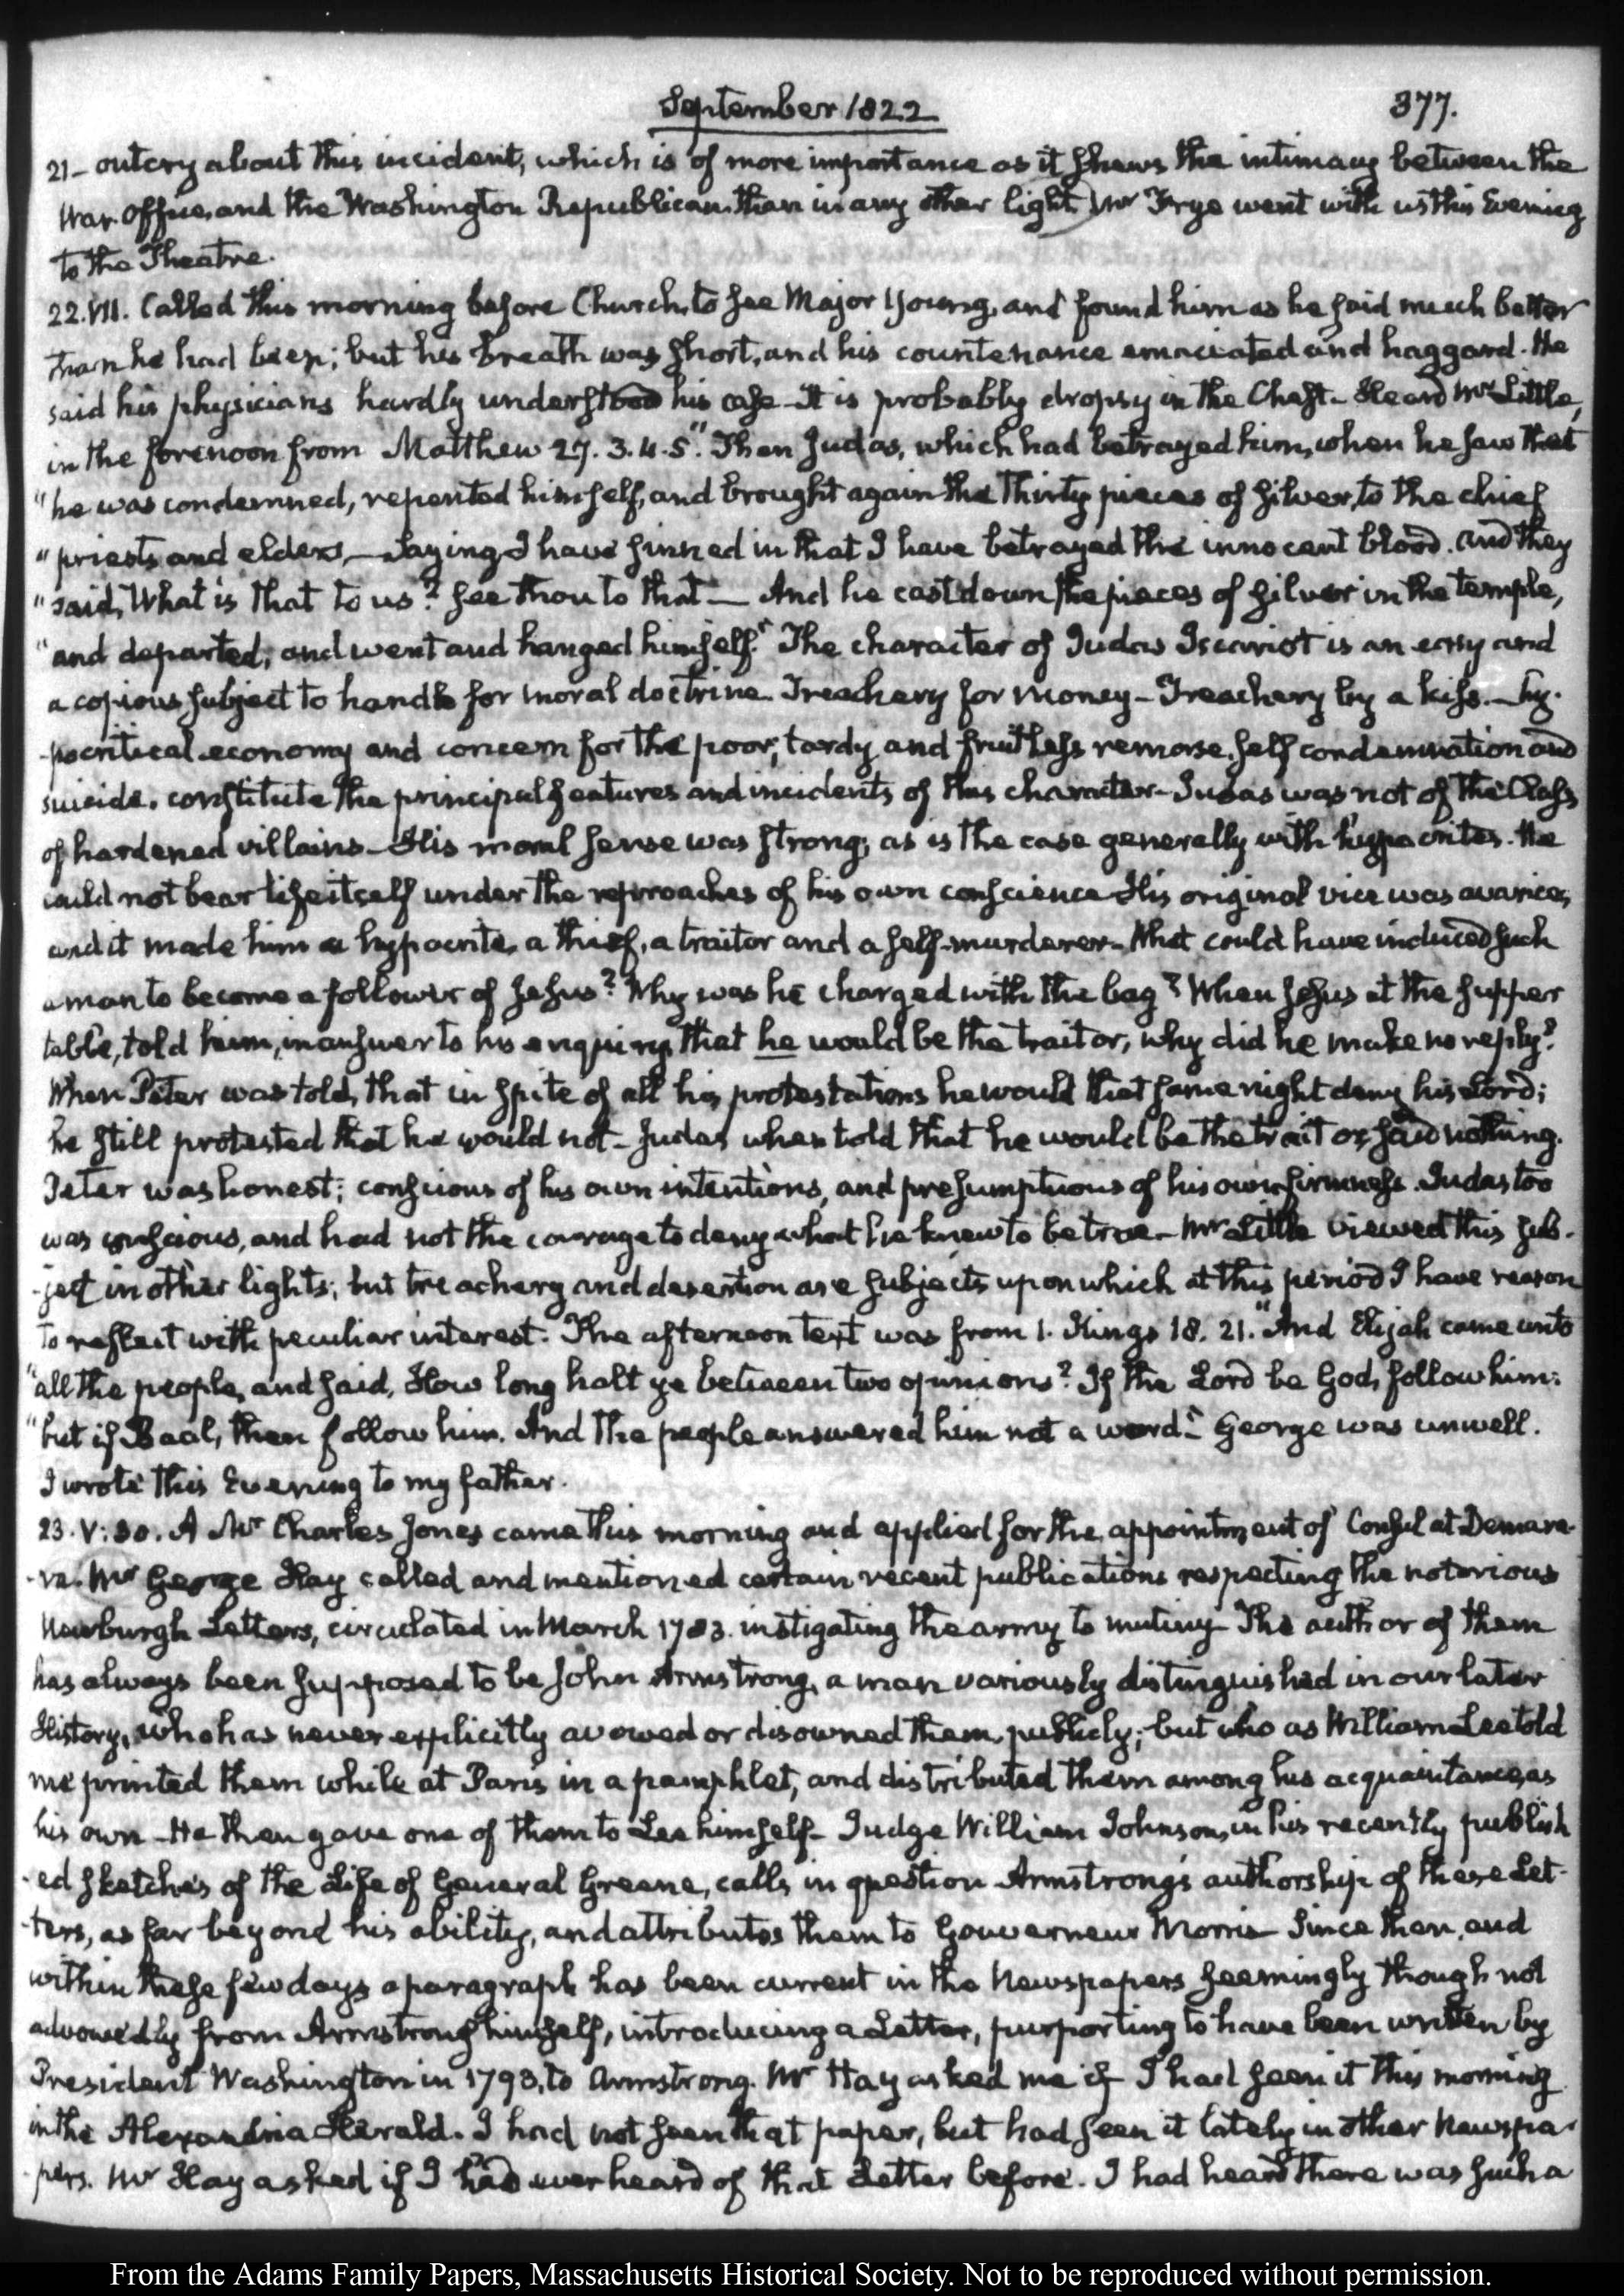 September 1822
377.
21- outcry about this incident, which is of more importance as it shews the intimacy between the
War office, and the Washington Republican than in any other light) Mr Frye went with us this Evening
to the Theatre.
22. VII. Called this morning before Church, to see Major Young, and found him as he said much better
than he had been; but his breath was short, and his countenance emaciated and haggard. He
said his physicians hardly understood his case - It is probably dropsy in the Chest - Heard Mr Little,
in the forenoon from Matthew 27. 3. 4. 5. "Then Judas, which had betrayed him, when he saw that
"he was condemned, repented himself, and brought again the thirty pieces of silver, to the chief
"priests and elders, - Saying I have sinned in that I have betrayed the innocent blood. And they
"said, What is that to us? See thou to that - And he cast down the pieces of silver in the temple,
"and departed, and went and hanged himself." The character of Judas Iscariot is an easy and
a copious subject to handle for moral doctrine. Treachery for Money - Treachery by a kiss. - hy-
-pocritical economy and concern for the poor, tardy and fruitless remorse, self condemnation and
suicide. constitute the principal features and incidents of this character - Judas was not of the Class
of hardened villains - His moral sense was strong; as is the case generally with hypocrites. He
could not bear life itself under the reproaches of his own conscience - His original vice was avarice,
and it made him a hypocrite, a thief, a traitor and a self-murderer - What could have induced such
a man to become a follower of Jesus? Why was he charged with the bag? When Jesus at the supper
table, told him, in answer to his enquiry, that he would be the traitor, why did he make no reply?
When Peter was told, that in spite of all his protestations he would that same night deny his Lord;
he still protested that he would not - Judas when told that he would be the traitor, said nothing.
Peter was honest; conscious of his own intentions, and presumptuous of his own firmness. Judas too
was conscious, and had not the courage to deny what he knew to be true - Mr Little viewed this sub-
-ject in other lights; but treachery and desertion are subjects upon which at this period I have reason
to reflect with peculiar interest. The afternoon text was from 1. Kings 18. 21. "And Elijah came unto
"all the people, and said, How long halt ye between two opinions? If the Lord be God, follow him:
"but if Baal, then follow him. And the people answered him not a word." George was unwell.
I wrote this Evening to my father.
23. V:30. A Mr Charles Jones came this morning and applied for the appointment of Consul at Demara-
-ra. Mr George Hay called and mentioned certain recent publications respecting the notorious
Newburgh Letters, circulated in March 1783. instigating the army to mutiny - The author of them
has always been supposed to be John Armstrong, a man variously distinguished in our later
History, who has never explicitly avowed or disowned them, publicly; but who as William Lee told
me printed them while at Paris in a pamphlet, and distributed them among his acquaintance, as
his own - He then gave one of them to Lee himself - Judge William Johnson, in his recently publish
-ed sketches of the Life of General Greene, calls in question Armstrong's authorship of these Let-
-ters, as far beyond his ability, and attributes them to Gouverneur Morris - Since then, and
within these few days a paragraph has been current in the Newspapers seemingly though not
avowedly from Armstrong himself, introducing a Letter, purporting to have been written by
President Washington in 1793, to Armstrong. Mr Hay asked me if I had seen it this morning
in the Alexandria Herald. I had not seen that paper, but had seen it lately in other Newspa-
-pers. Mr Hay asked if I had ever heard of that Letter before. I had heard there was such a
From the Adams Family Papers, Massachusetts Historical Society. Not to be reproduced without permission.